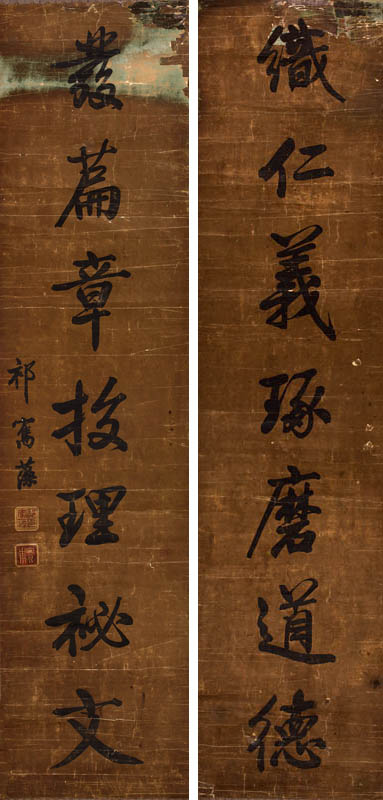 織仁義琢磨道德
發篇章挍理祕文
祁寯藻